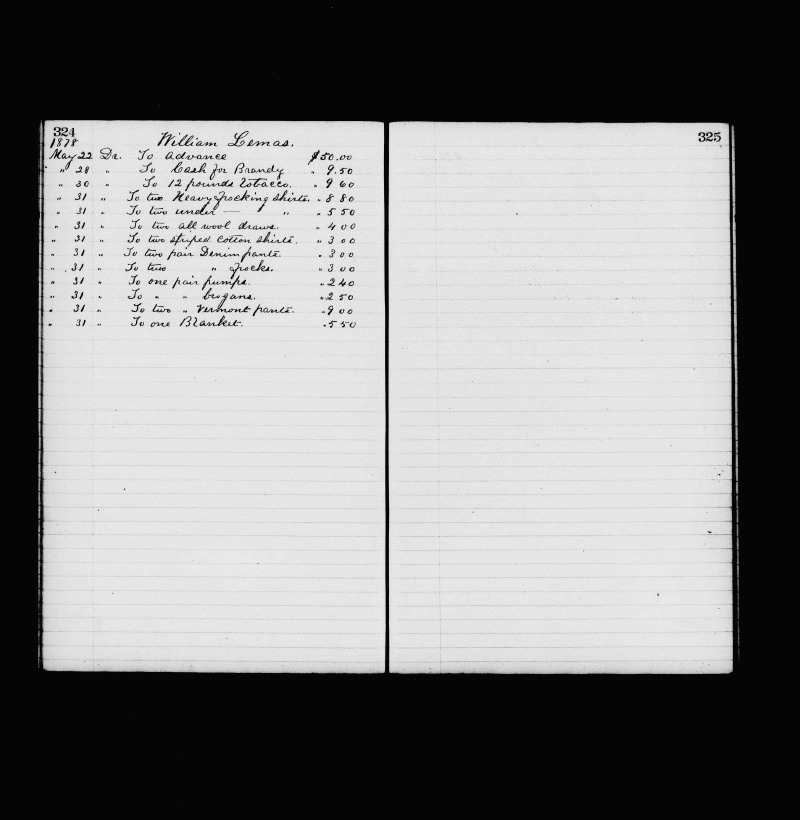 324
1878 William Lemas.
May 22 Dr. To Advance $50.00
" 28 " To Cash for Brandy " 9.50
" 30 " To 12 pounds Tobacco. " 9 60
" 31 " To two Heavy frocking shirts. " 8 80
" 31 " To two under — " " 5 50
" 31 " To two all wool draws. " 4 00
" 31 " To two striped cotton shirts. " 3 00
" 31 " To two pair Denim pants. " 3 00
" 31 " To two " frocks. " 3 00
" 31 " To one pair pumps. " 2 40
" 31 " To " " brogans. " 2 50
" 31 " To two " Vermont pants. " 9 00
" 31 " To one Blanket. " 5 50
325